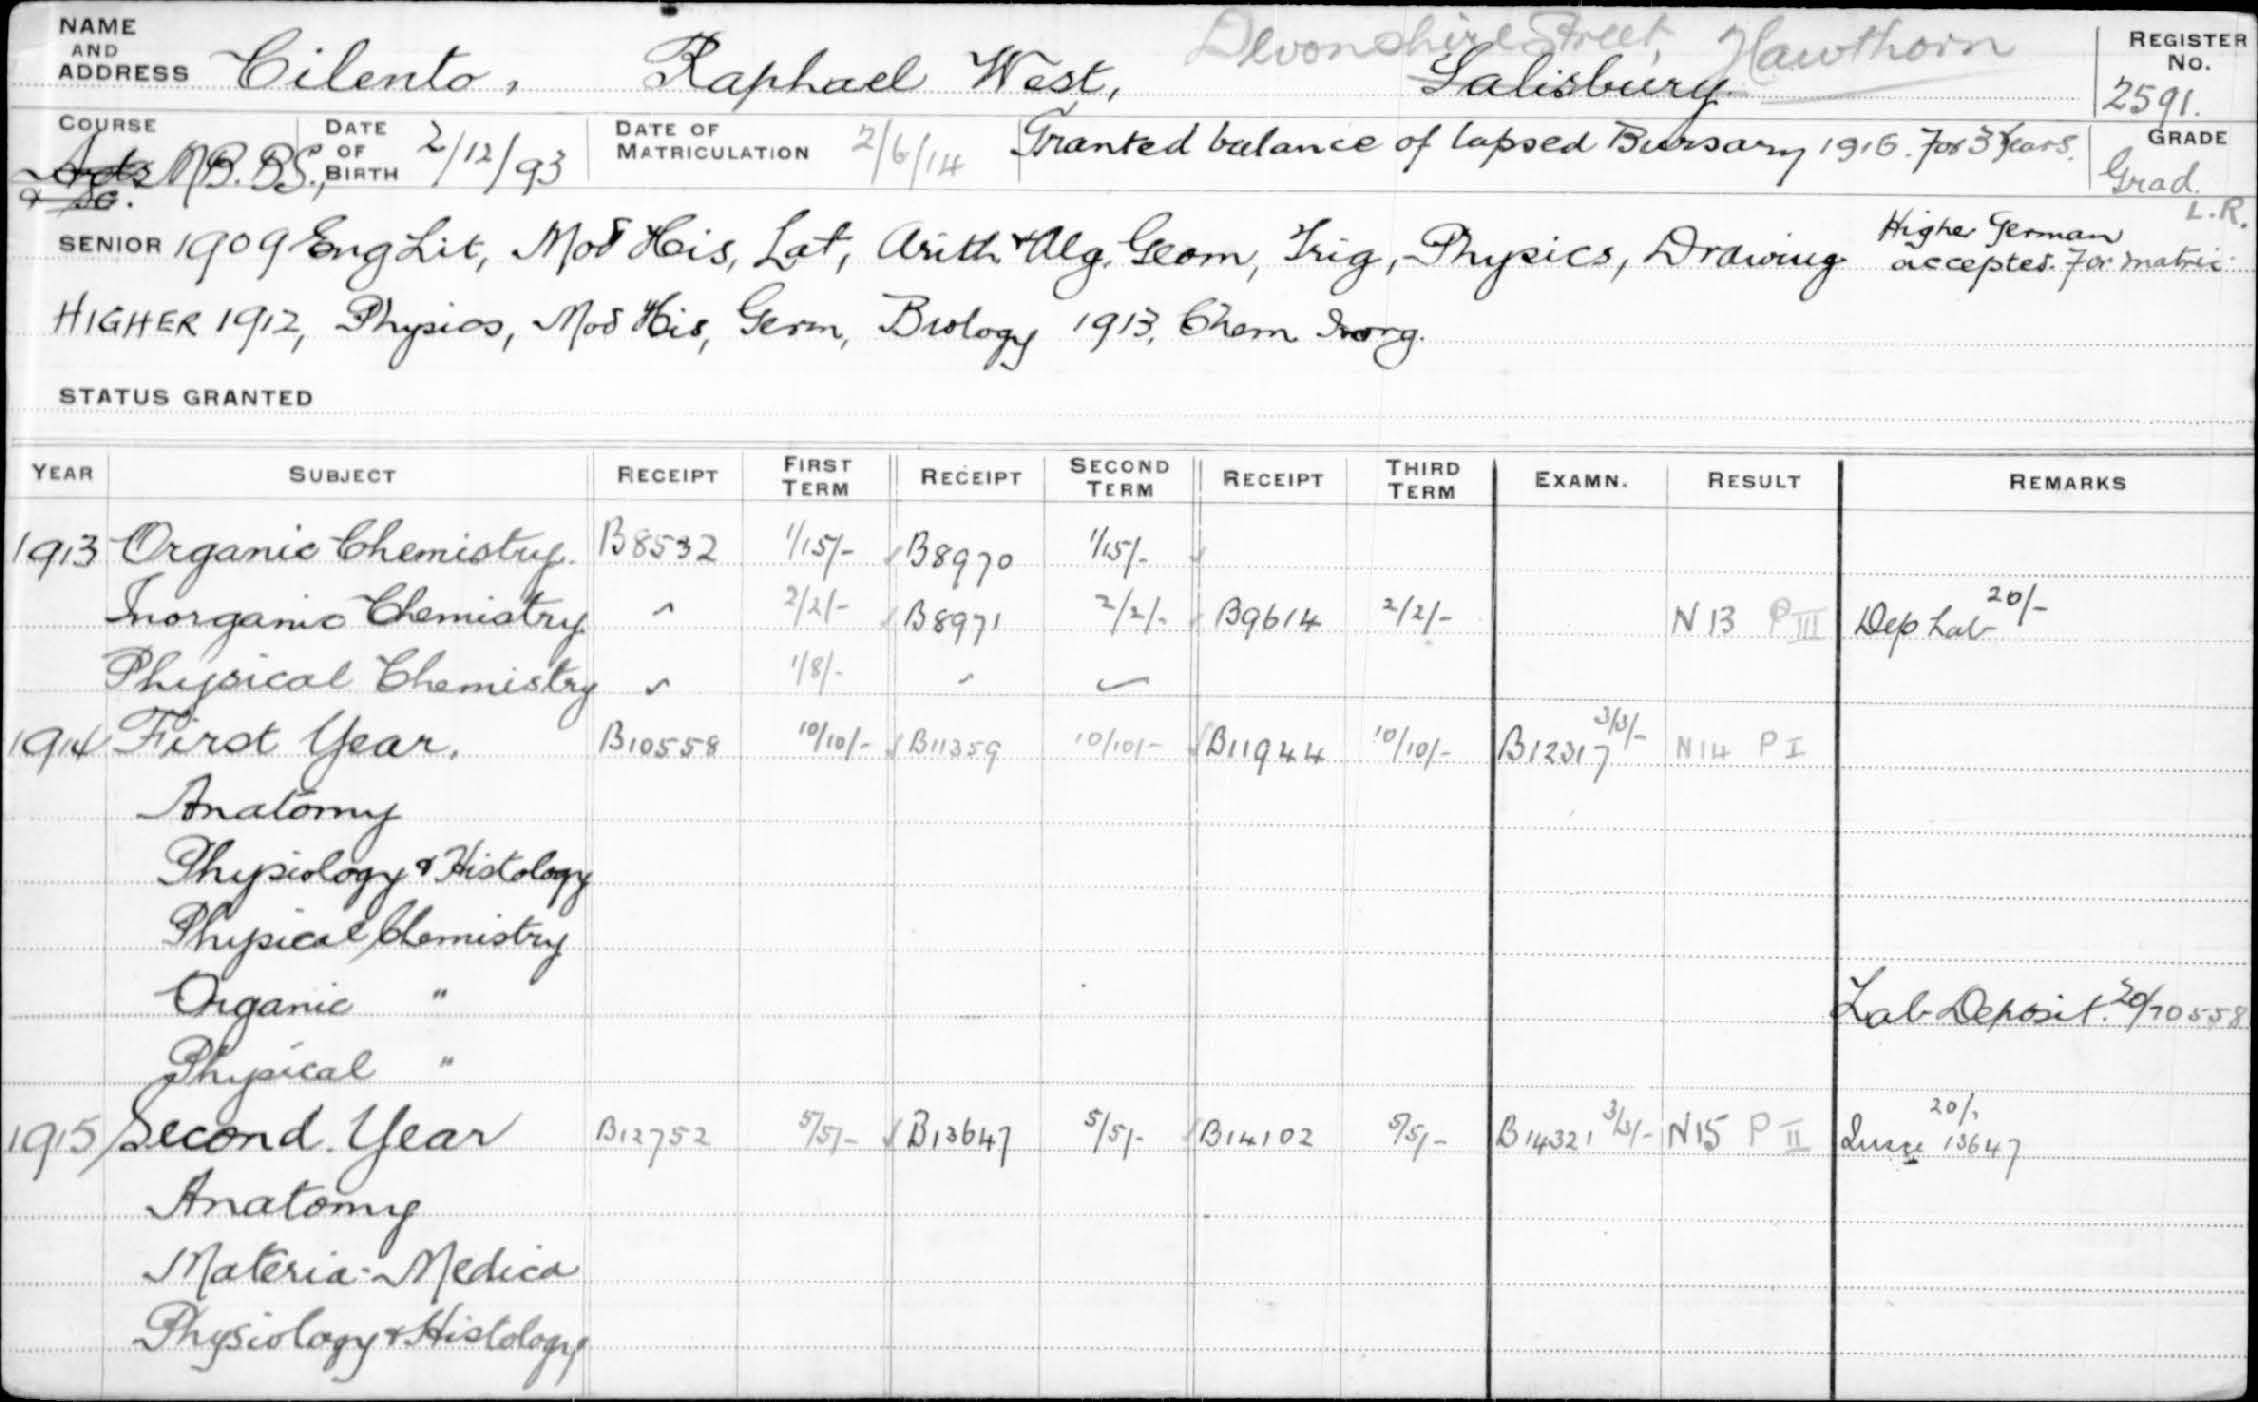 NAME AND ADDRESS Cilento, Raphael West, Salisbury Devonshire Street, Hawthorn
REGISTER No. 2591.
COURSE Arts & Sc. M.B. B.S., DATE OF BIRTH 2/12/93 DATE OF MATRICULATION 2/6/14 Granted balance of lapsed Bursary 1916. For 3 Years. GRADE Grad.
L.R.
SENIOR 1909 Eng Lit, Mod His, Lat, Arith & Alg, Geom, Trig, Physics, Drawing Higher German accepted for matric
HIGHER 1912, Physics, Mod His, Germ, Biology 1913, Chem Inorg.
STATUS GRANTED
YEAR SUBJECT RECEIPT FIRST TERM RECEIPT SECOND TERM RECEIPT THIRD TERM EXAMN. RESULT REMARKS
1913 Organic Chemistry. B8532 1/15/- B8970 1/15/-
Inorganic Chemistry 2/2/- B8971 2/2/- B9614 2/2/- N13 P III Dep Lab 20/-
Physical Chemistry 1/8/-
1914 First Year. B10558 10/10/- B11359 10/10/- B11944 10/10/- B12317 3/3/- N14 P I
Anatomy
Physiology & Histology
Physical Chemistry
Organic "
Lab Deposit. 20/ 10558
Physical "
1915 Second Year B12752 5/5/- B13647 5/5/- B14102 5/5/- B14321 3/3/- N15 P II 20/- 13647
Anatomy
Materia-Medica
Physiology & Histology